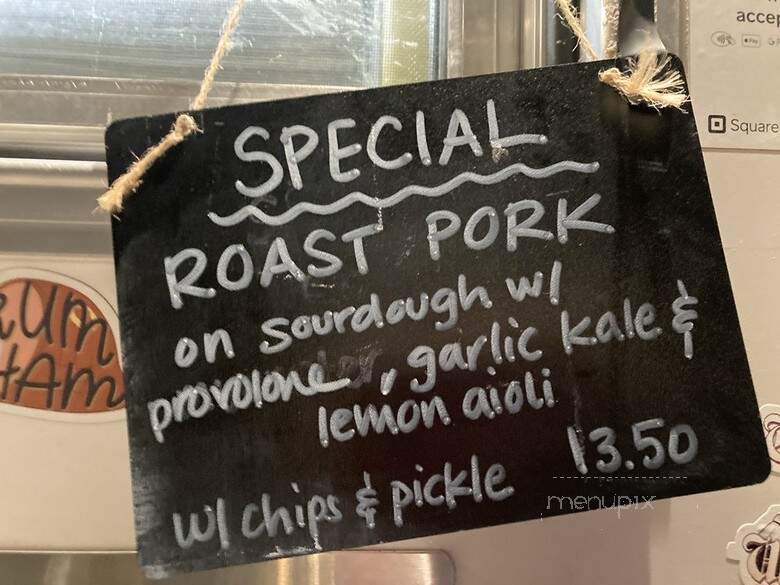 SPECIAL
ROAST PORK
on sourdough w/
provolone, garlic kale &
lemon aioli
13.50
w/ chips & pickle
menupix
accep
Pay
Square
RUM
HAM